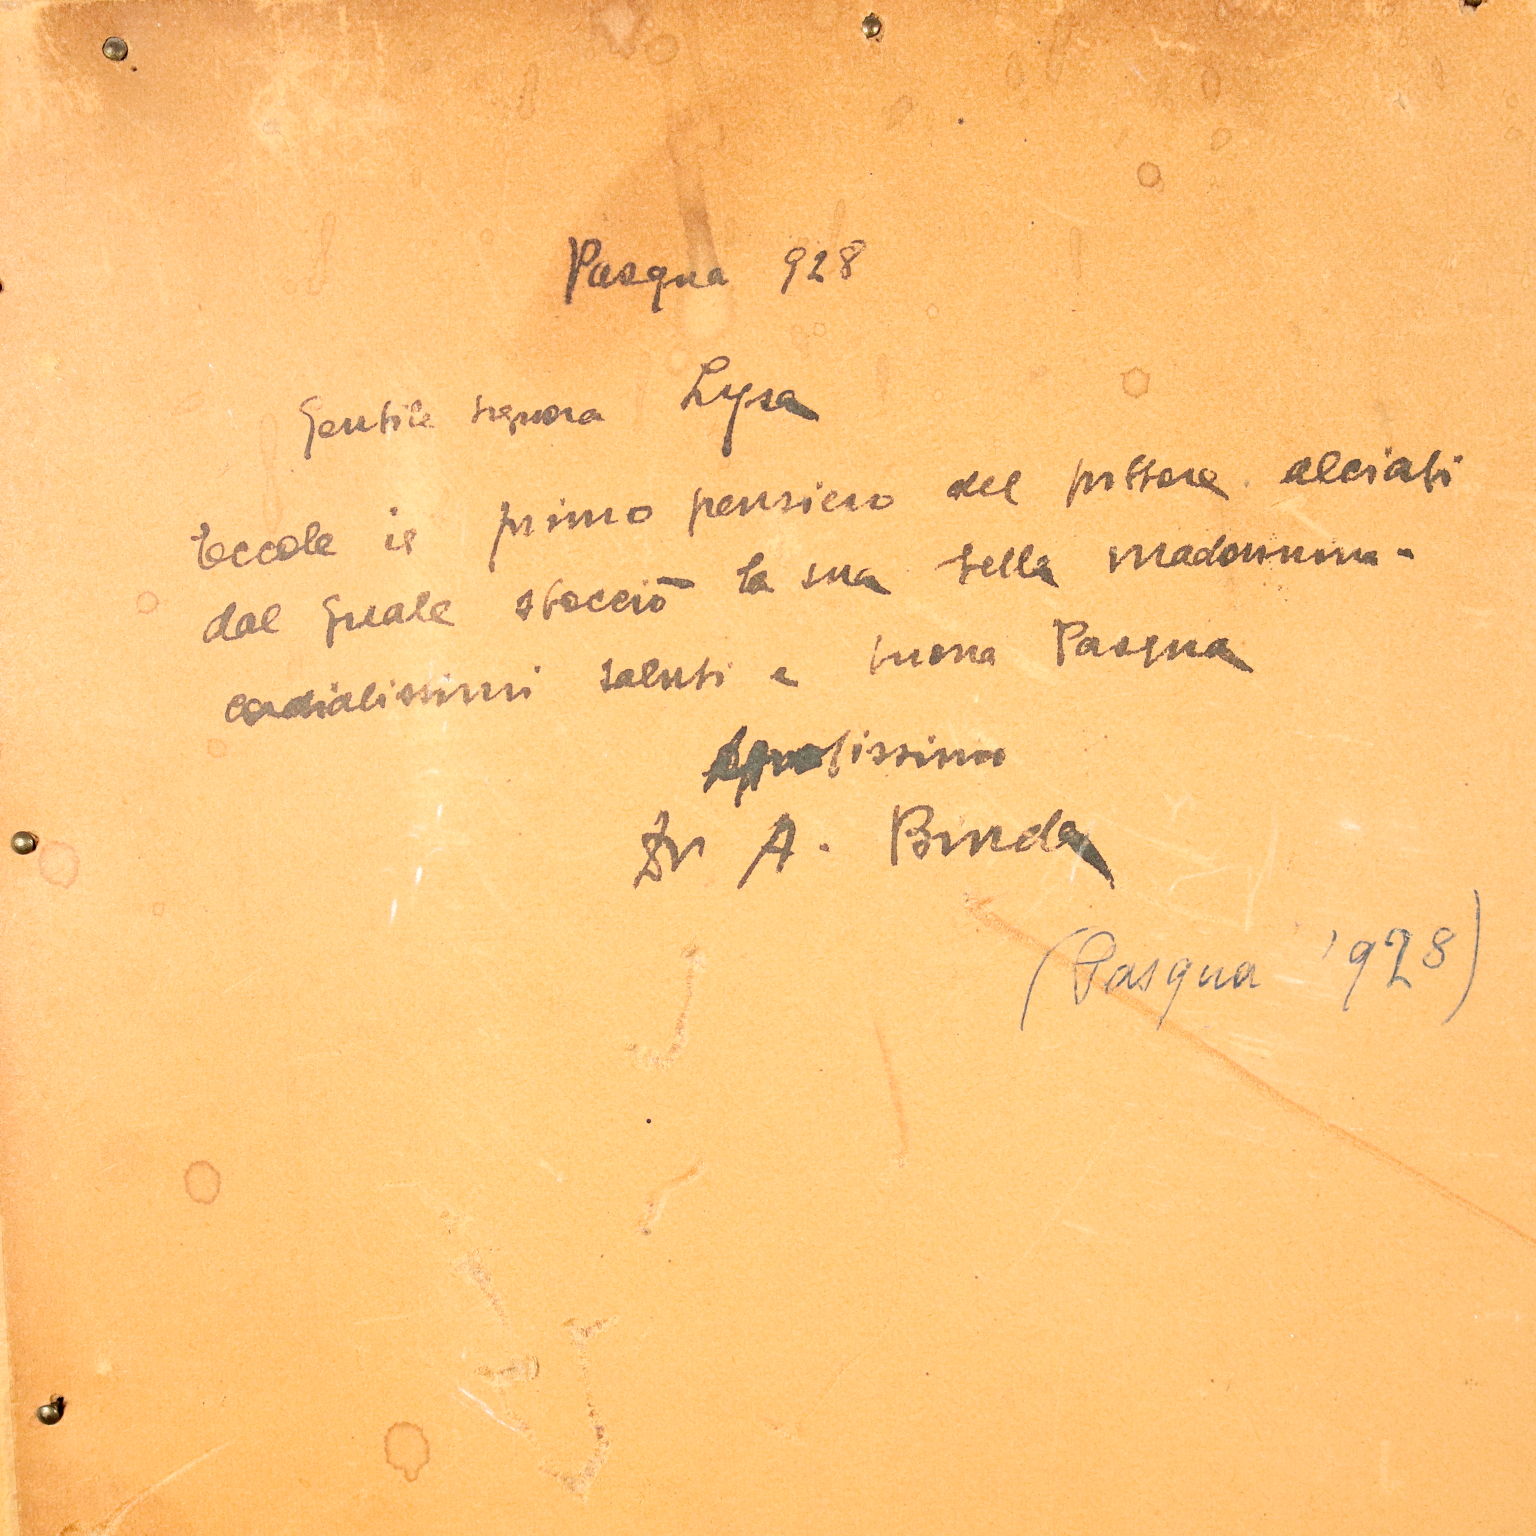 Pasqua 928
Gentile signora Lysa
Eccole il primo pensiero del pittore alciati
dal quale sbocciò la sua bella madonnina -
cordialissimi saluti e buona Pasqua
Dr A. Binda
(Pasqua '928)